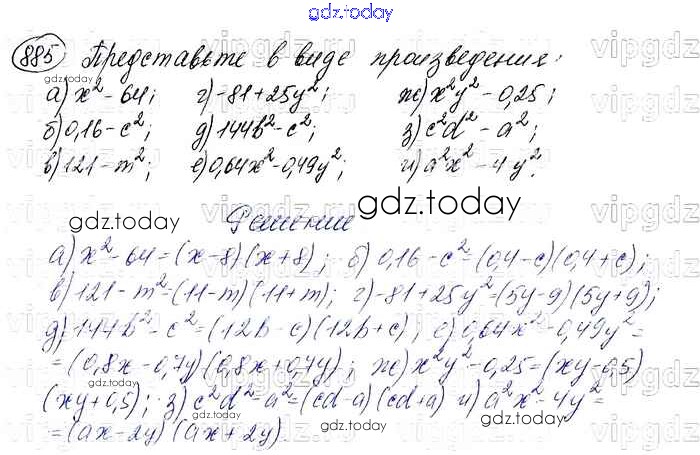 gdz.today
885 Представьте в виде произведения:
а) x² - 64; г) -81 + 25y²; ж) x²y² - 0,25;
б) 0,16 - c²; д) 144b² - c²; з) c²d² - a²;
в) 121 - m²; е) 0,64x² - 0,49y²; и) a²x² - 4y².
Решение
а) x² - 64 = (x - 8)(x + 8); б) 0,16 - c² = (0,4 - c)(0,4 + c);
в) 121 - m² = (11 - m)(11 + m); г) -81 + 25y² = (5y - 9)(5y + 9);
д) 144b² - c² = (12b - c)(12b + c); е) 0,64x² - 0,49y² =
= (0,8x - 0,7y)(0,8x + 0,7y); ж) x²y² - 0,25 = (xy - 0,5)
(xy + 0,5); з) c²d² = a² = (cd - a)(cd + a) и) a²x² - 4y² =
= (ax - 2y)(ax + 2y).
gdz.today
gdz.today
gdz.today
gdz.today
gdz.today
gdz.today
vipgdz
vipgdz
vipgdz
vipgdz